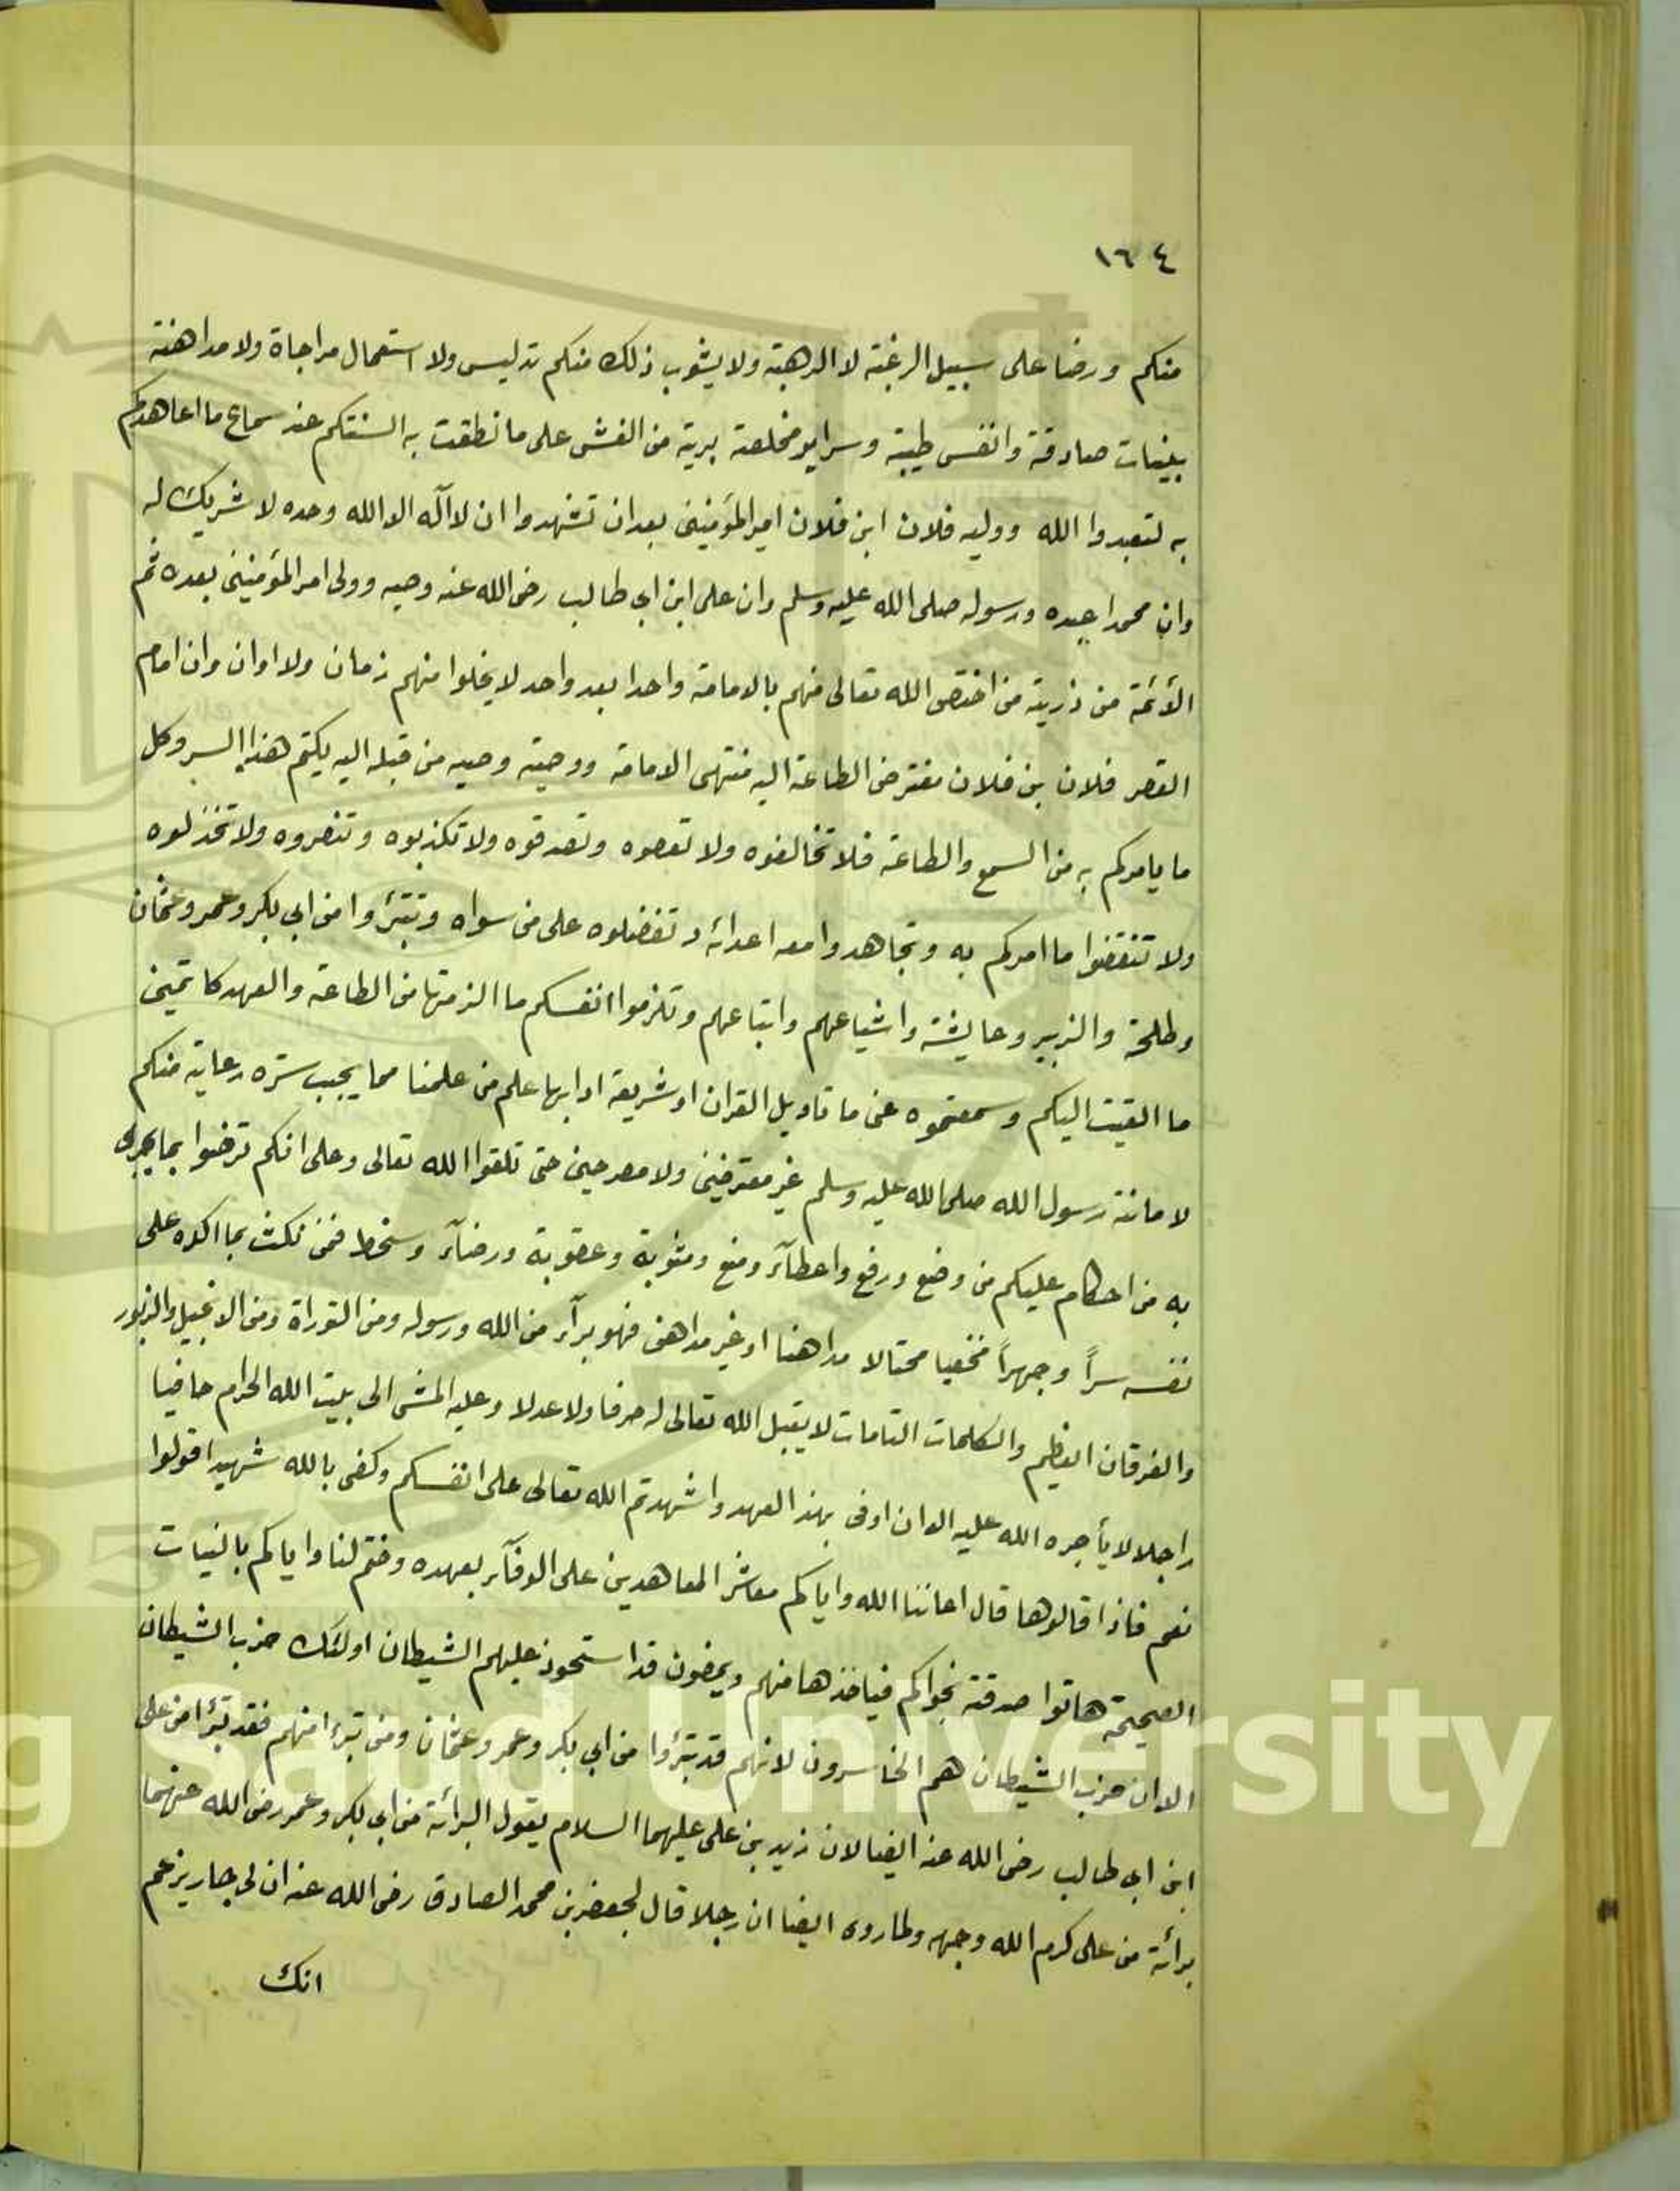 ١٦٤
منكم ورضا على سبيل الرغبة لا الرهبة ولا يشوب ذلك منكم تدليس ولا استعمال مراجاة ولا مداهنة
بنيات صادقة وانفس طيبة وسراير مخلصة برية من الغش على ما نطقت به السنتكم عند سماع ما اعاهدكم
به لتعبدوا الله ووليه فلان ابن فلان امير المؤمنين بعد ان تشهدوا ان لا اله الا الله وحده لا شريك له
وان محمدا عبده ورسوله صلى الله عليه وسلم وان على ابن ابي طالب رضى الله عنه وصيه وولى امر المؤمنين بعده ثم
الأئمة من ذريته من اختص الله تعالى منهم بالامامة واحدا بعد واحد لا يخلوا منهم زمان ولا اوان وان امام
العصر فلان بن فلان مفترض الطاعة اليه منتهى الامامة ووصية وصيه من قبله اليه يكتم هذا السر وكل
ما يامركم به من السمع والطاعة فلا تخالفوه ولا تعصوه وتصدقوه ولا تكذبوه وتنصروه ولا تخذلوه
ولا تنقضوا ما امركم به وتجاهدوا معه اعدائه وتفضلوه على من سواه وتتبرؤا من ابي بكر وعمر وعثمان
وطلحة والزبير وعايشة واشياعهم واتباعهم وتلزموا انفسكم ما الزمتها من الطاعة والعهد كاتمين
ما القيت اليكم وسمعتموه عنى ما تاويل القران او شريعة ادابها علم من علمنا مما يجب ستره رعاية منكم
لامانة رسول الله صلى الله عليه وسلم غير معترضين ولا مصرحين حتى تلقوا الله تعالى وعلى انكم ترضوا بما يجرى
به من احكام عليكم من وضع ورفع واعطآء ومنع ومثوبة وعقوبة ورضآء وسخط فمن نكث بما اكده على
نفسه سراً وجهراً مخفيا محتالا مداهنا او غير مداهن فهو برآء من الله ورسوله ومن التوراة ومن الانجيل والزبور
والفرقان العظيم والكلمات التامات لا يقبل الله تعالى له صرفا ولا عدلا وعليه المشى الى بيت الله الحرام حافيا
راجلا لا يأجره الله عليه الا ان اوفى بهذ العهد واشهدتم الله تعالى على انفسكم وكفى بالله شهيدا قولوا
نعم فاذا قالوها قال اعاننا الله واياكم معاشر المعاهدين على الوفآء بعهده وختم لنا واياكم بالنيات
الصحيحة هاتوا صدقة نجواكم فياخذها منهم ويمضون قد استحوذ عليهم الشيطان اولئك حزب الشيطان
الا ان حزب الشيطان هم الخاسرون لانهم قد تبرؤا من ابي بكر وعمر وعثمان ومن تبرء منهم فقد تبرأ من على
ابن ابي طالب رضى الله عنه ايضا لان زيد بن على عليهما السلام يقول البرائة من ابي بكر وعمر رضى الله عنهما
برائة من على كرم الله وجهه ولما روى ايضا ان رجلا قال لجعفر بن محمد الصادق رضى الله عنه ان لى جار يزعم
انك
King Saud University